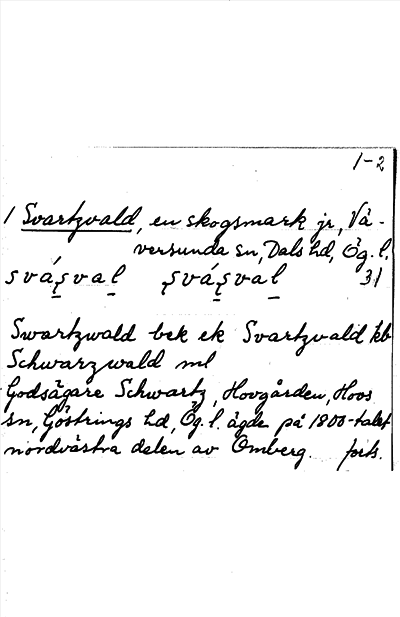 1-2
1 Svartzvald, en skogsmark jr, Vä-
versunda sn, Dals hd, Ög. l.
svásval svásval 31
Swartzwald bek ek Svartzvald kb
Schwarzwald ml
Godsägare Schwartz, Hovgården, Hovs
sn, Göstrings hd, Ög. l. ägde på 1800-talet
nordvästra delen av Omberg. forts.